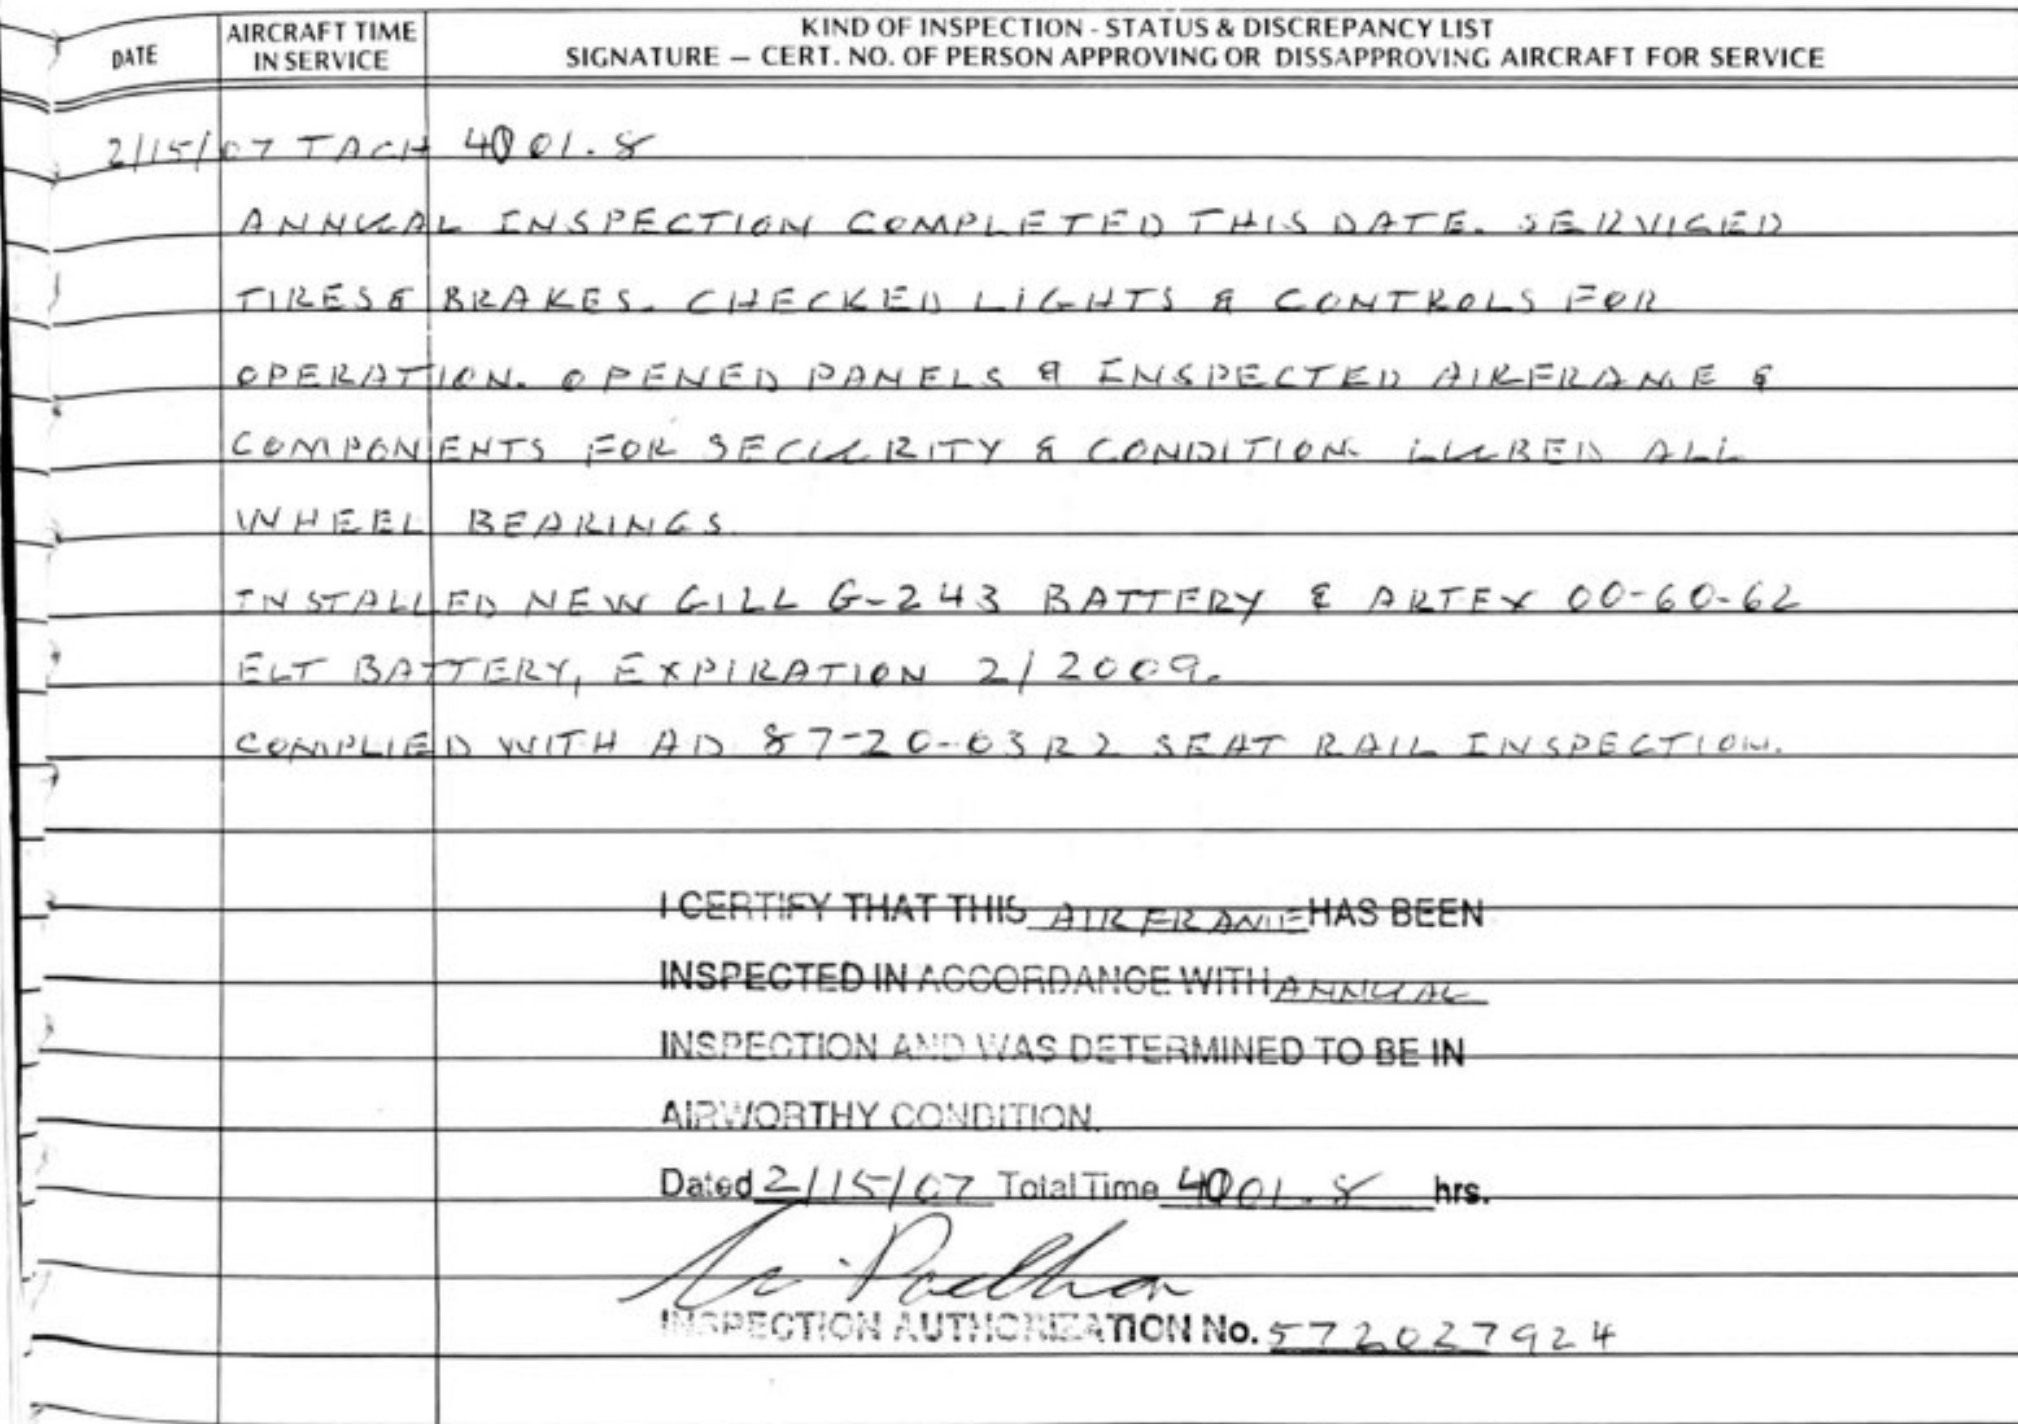 DATE
AIRCRAFT TIME
IN SERVICE
KIND OF INSPECTION - STATUS & DISCREPANCY LIST
SIGNATURE — CERT. NO. OF PERSON APPROVING OR DISSAPPROVING AIRCRAFT FOR SERVICE
2/15/07 TACH 4001.8
ANNUAL INSPECTION COMPLETED THIS DATE. SERVICED
TIRES & BRAKES. CHECKED LIGHTS & CONTROLS FOR
OPERATION. OPENED PANELS & INSPECTED AIRFRAME &
COMPONENTS FOR SECURITY & CONDITION. LUBED ALL
WHEEL BEARINGS.
INSTALLED NEW GILL G-243 BATTERY & ARTEX 00-60-62
ELT BATTERY, EXPIRATION 2/2009.
COMPLIED WITH AD 87-20-03R2 SEAT RAIL INSPECTION.
I CERTIFY THAT THIS AIRFRAME HAS BEEN
INSPECTED IN ACCORDANCE WITH ANNUAL
INSPECTION AND WAS DETERMINED TO BE IN
AIRWORTHY CONDITION.
Dated 2/15/07 Total Time 4001.8 hrs.
INSPECTION AUTHORIZATION No. 572027924